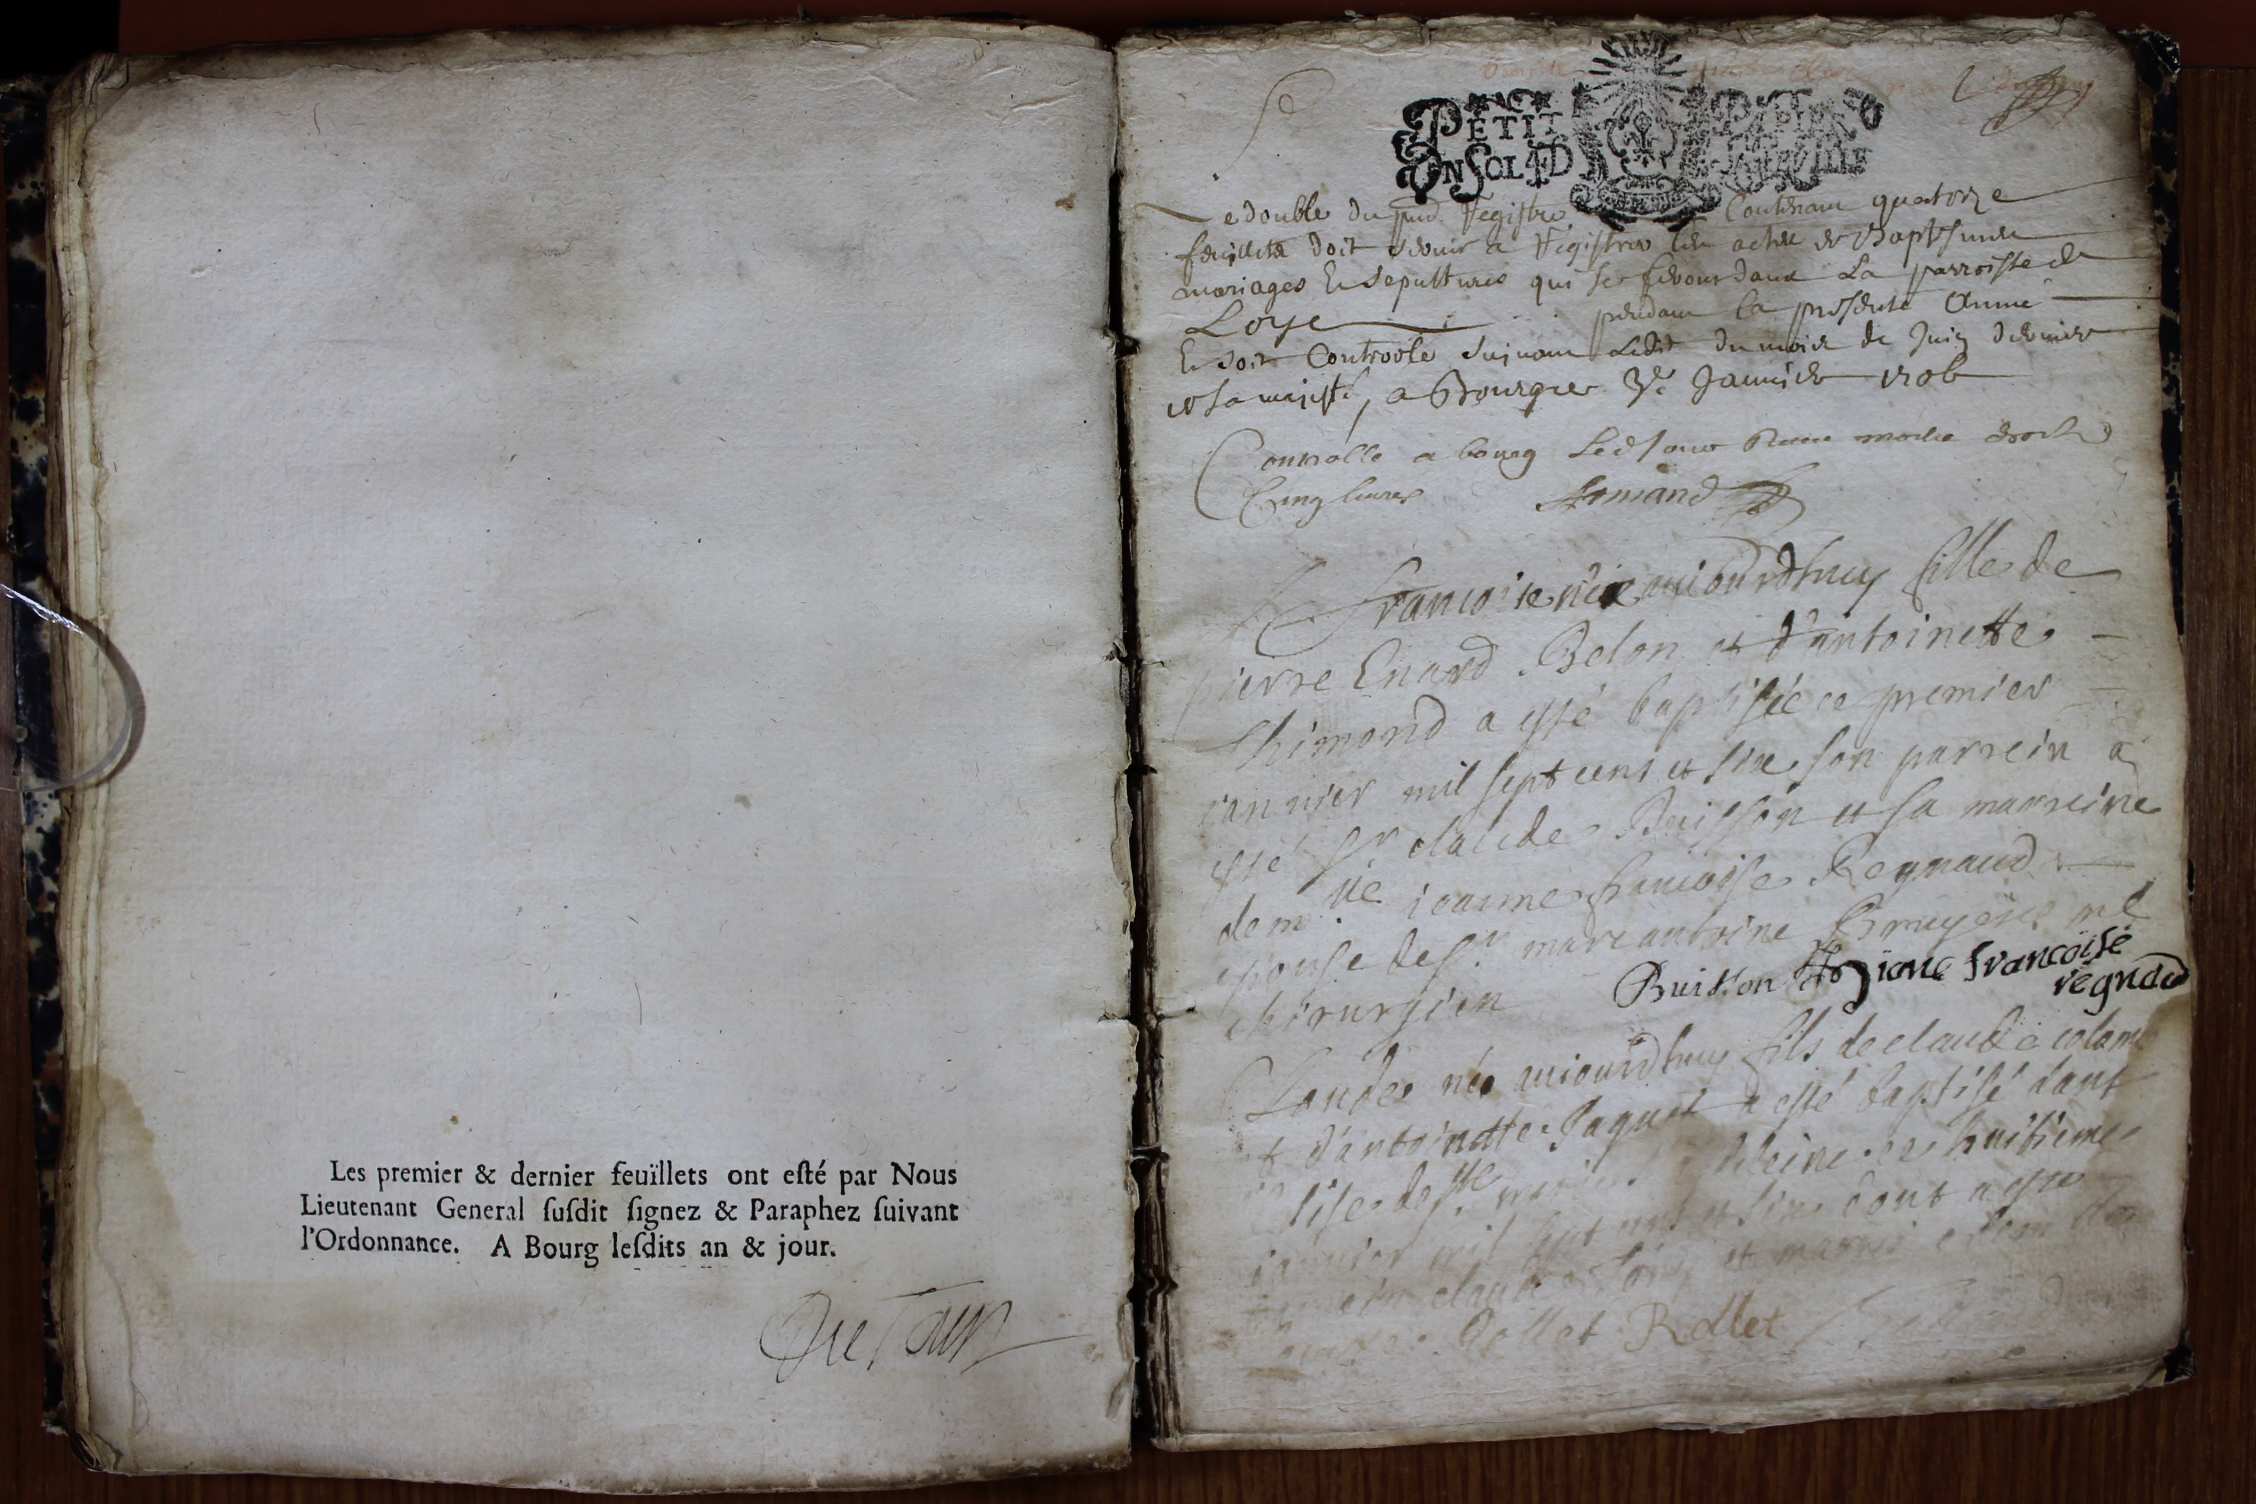 Les premier & dernier feuïllets ont eſté par Nous
Lieutenant General ſuſdit ſignez & Paraphez ſuivant
l'Ordonnance. A Bourg leſdits an & jour.
PETIT PAPIER
UN SOL 4D LA FEUILLE
Le double du pnt Registre Contenant quatorze
feuillets doit servir a Registrer les actes de Baptesmes
mariages et sepultures qui se feront dans La parroisse de
Loye pendant la presente Année
Et soit Controole suivant Ledit du mois de Juin dernier
a Bourg ce 3e Janvier 1706
Controlle a bourg
Cinq livres Armand
Francoise née auiourdhuy fille de
pierre Enard Belon et d'antoinette
Thimond a esté baptisée ce premier
ianvier mil sept cens et six son parrein a
esté Sr claude Buisson et sa marreine
dem lle ieanne francoise Regnaud
epouse de Sr marc antoine Bruyere me
chirurgien Buisson Jiane francoise
regnaud
Claude né auiourdhuy fils de claude colomb
et d'antoinette Jaquet a esté baptisé dans
l'eglise de Ste marie ce huitieme
ianvier mil sept cens et six dont a esté
parrein claude et
Rollet Rollet